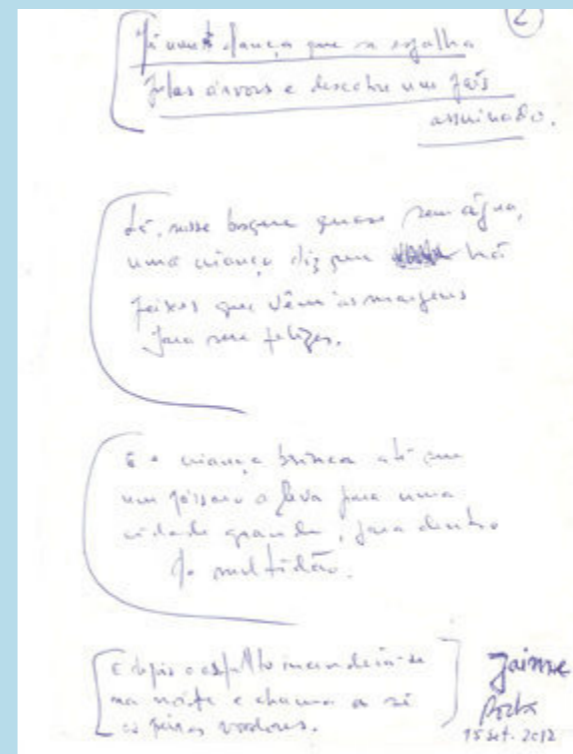 2
uma dança que se espalha
pelas árvores e descobre um país
assinado.
Lá, nesse bosque quase sem água,
uma criança diz que há
peixes que vêm às margens
para ser felizes.
E a criança brinca até que
um pássaro a leva para uma
cidade grande, para dentro
da multidão.
E depois o asfalto incendeia-se
na noite e chama a si
os
Jaime
Rocha
15 set. 2012